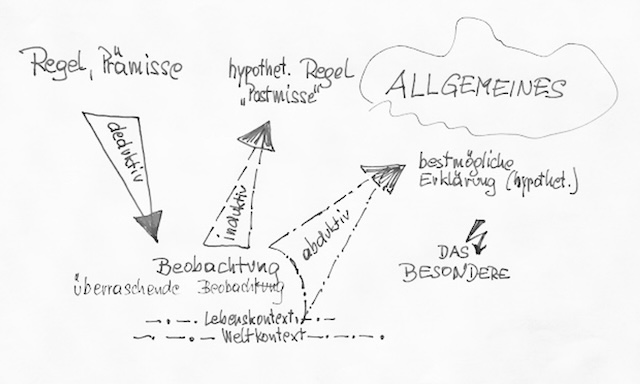 Regel, Prämisse
hypothet. Regel
„Postmisse“
ALLGEMEINES
deduktiv
induktiv
abduktiv
bestmögliche
Erklärung (hypothet.)
DAS
BESONDERE
Beobachtung
überraschende Beobachtung
Lebenskontext
Weltkontext